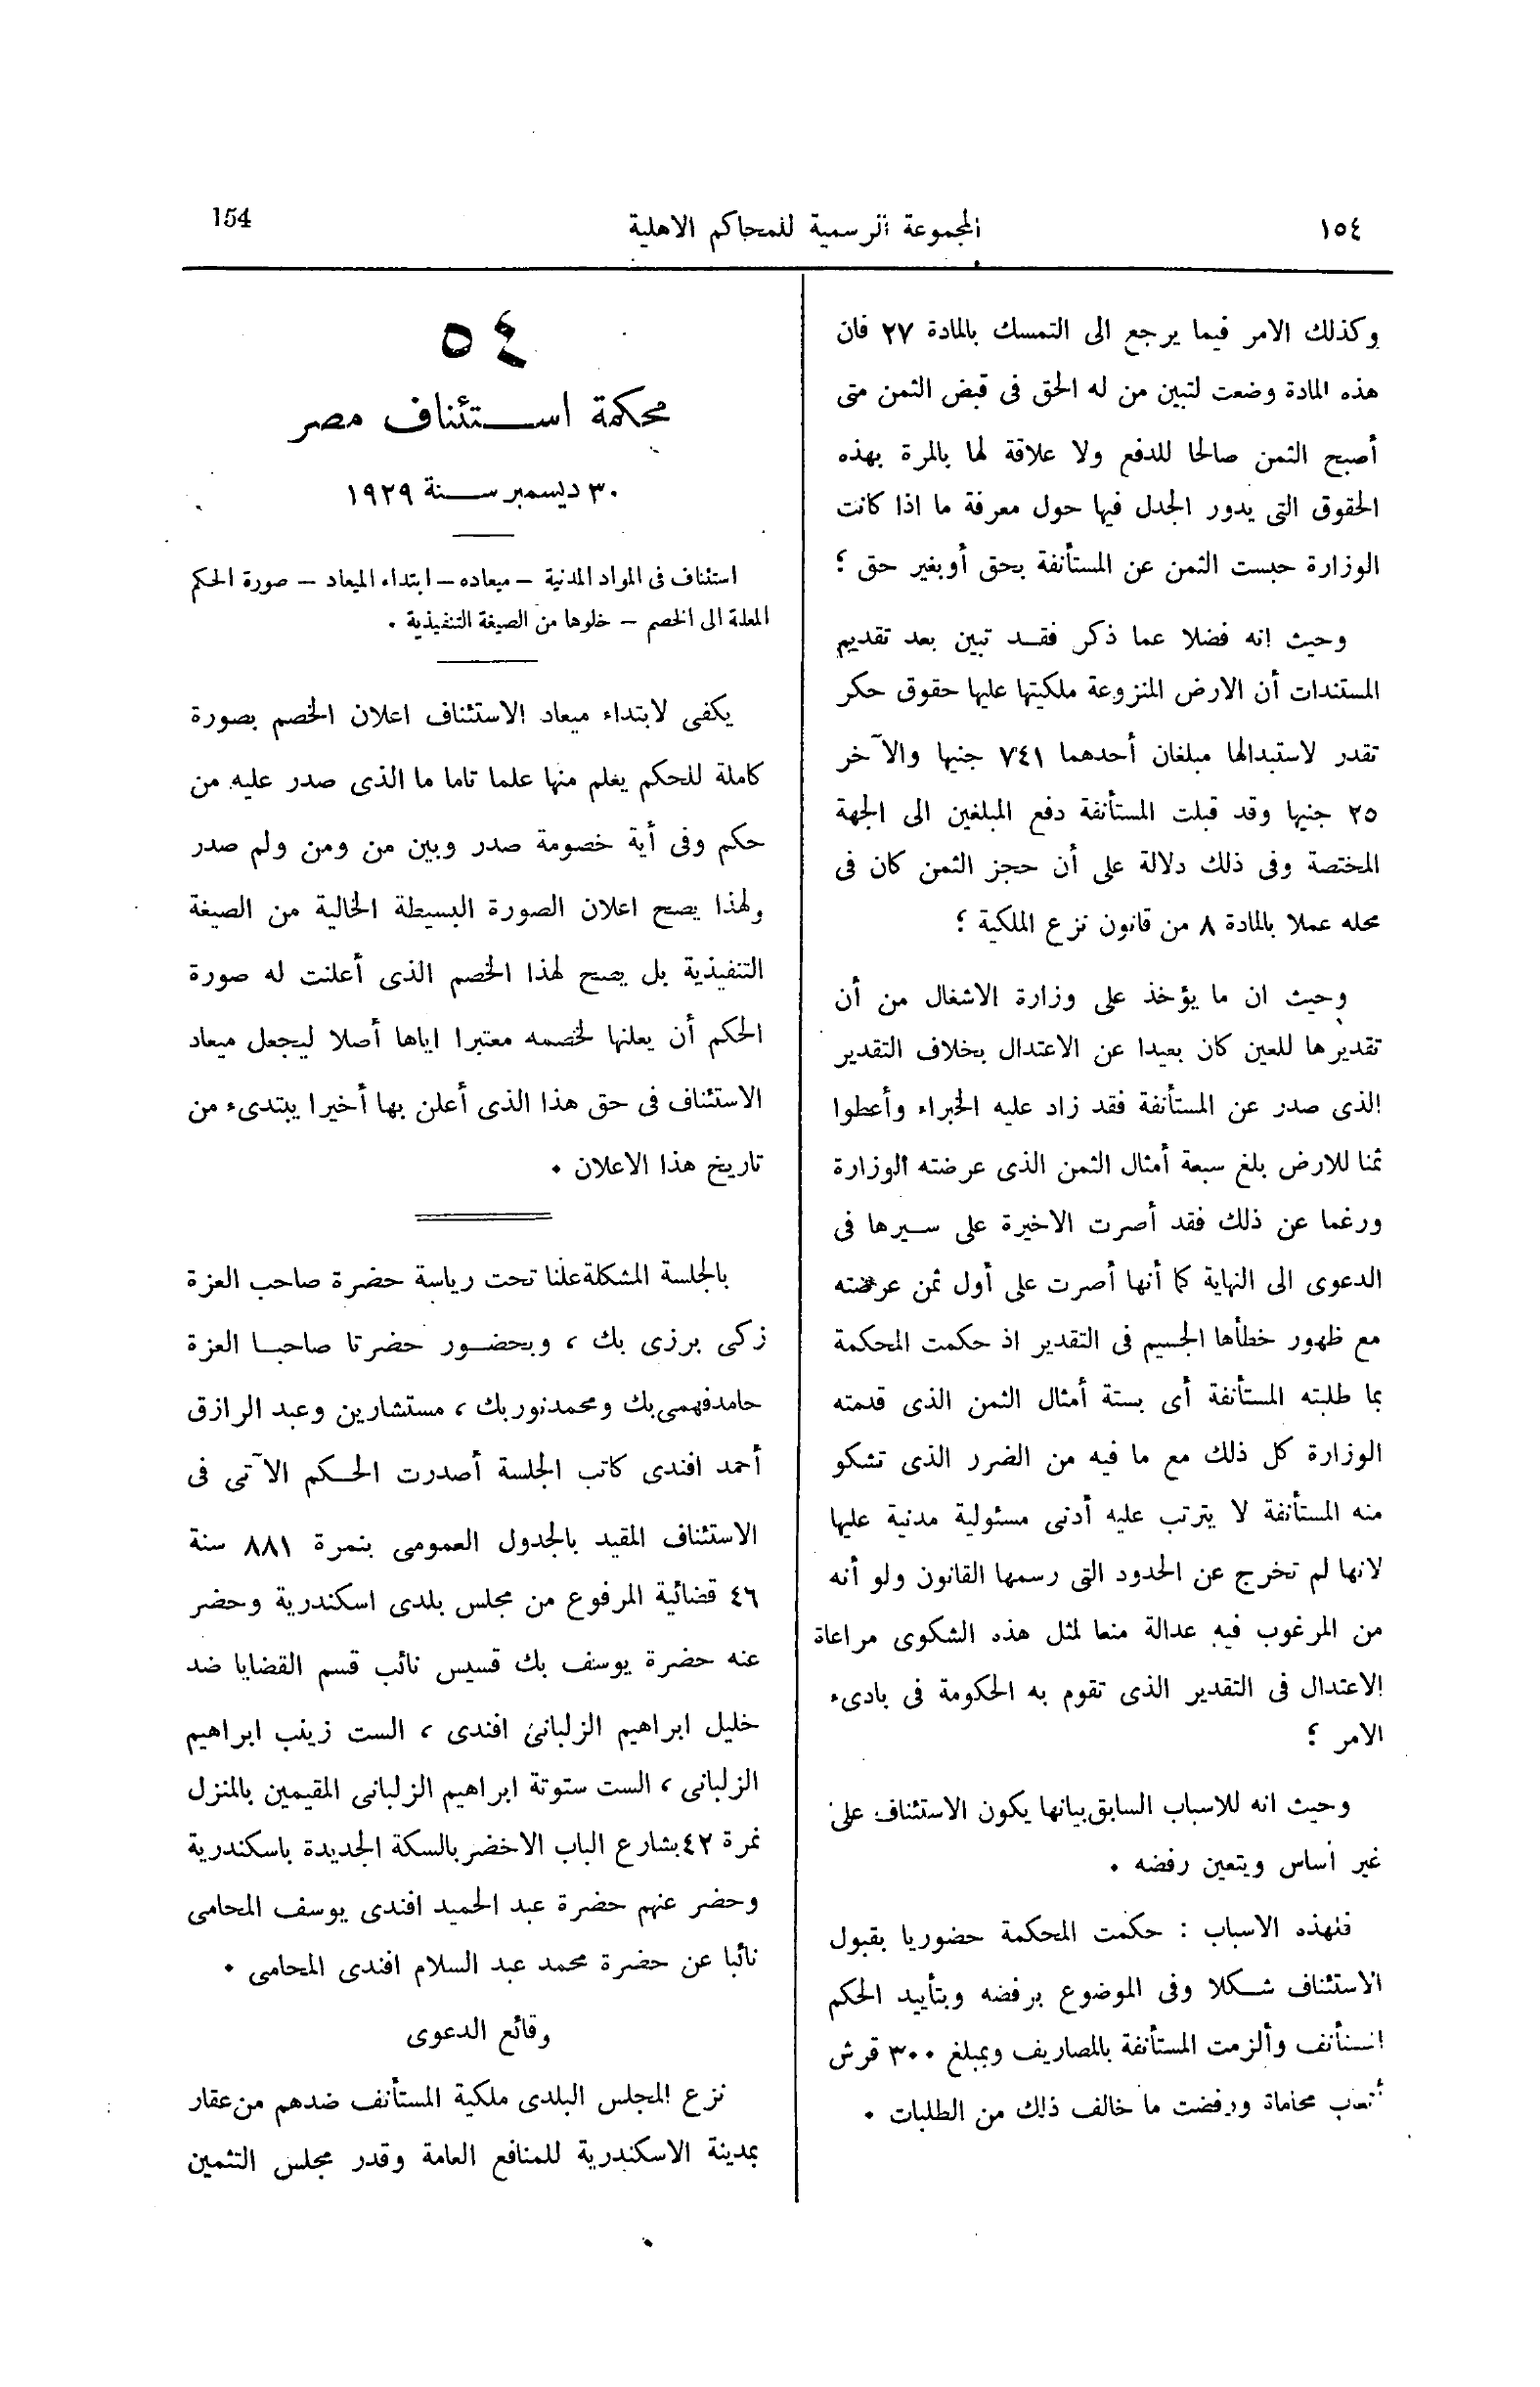 ١٥٤
المجموعة الرسمية للمحاكم الاهلية
154
وكذلك الامر فيما يرجع الى التمسك بالمادة ٢٧ فان
هذه المادة وضعت لتبين من له الحق فى قبض الثمن متى
أصبح الثمن صالحا للدفع ولا علاقة لها بالمرة بهذه
الحقوق التى يدور الجدل فيها حول معرفة ما اذا كانت
الوزارة حبست الثمن عن المستأنفة بحق أو بغير حق ؛
وحيث انه فضلا عما ذكر فقد تبين بعد تقديم
المستندات أن الارض المنزوعة ملكيتها عليها حقوق حكر
تقدر لاستبدالها مبلغان أحدهما ٧٤١ جنيها والآخر
٢٥ جنيها وقد قبلت المستأنفة دفع المبلغين الى الجهة
المختصة وفى ذلك دلالة على أن حجز الثمن كان فى
محله عملا بالمادة ٨ من قانون نزع الملكية ؛
وحيث ان ما يؤخذ على وزارة الاشغال من أن
تقديرها للعين كان بعيدا عن الاعتدال بخلاف التقدير
الذى صدر عن المستأنفة فقد زاد عليه الخبراء وأعطوا
ثمنا للارض بلغ سبعة أمثال الثمن الذى عرضته الوزارة
ورغما عن ذلك فقد أصرت الاخيرة على سيرها فى
الدعوى الى النهاية كما أنها أصرت على أول ثمن عرضته
مع ظهور خطأها الجسيم فى التقدير اذ حكمت المحكمة
بما طلبته المستأنفة أى بستة أمثال الثمن الذى قدمته
الوزارة كل ذلك مع ما فيه من الضرر الذى تشكو
منه المستأنفة لا يترتب عليه أدنى مسئولية مدنية عليها
لانها لم تخرج عن الحدود التى رسمها القانون ولو أنه
من المرغوب فيه عدالة منعا لمثل هذه الشكوى مراعاة
الاعتدال فى التقدير الذى تقوم به الحكومة فى بادىء
الامر ؛
وحيث انه للاسباب السابق بيانها يكون الاستئناف على
غير أساس ويتعين رفضه ٠
فلهذه الاسباب : حكمت المحكمة حضوريا بقبول
الاستئناف شكلا وفى الموضوع برفضه وبتأييد الحكم
المستأنف وألزمت المستأنفة بالمصاريف وبمبلغ ٣٠٠ قرش
أتعاب محاماة ورفضت ما خالف ذلك من الطلبات ٠
٥٤
محكمة استئناف مصر
٣٠ ديسمبر سنة ١٩٢٩
استئناف فى المواد المدنية – ميعاده – ابتداء الميعاد – صورة الحكم
المعلنة الى الخصم – خلوها من الصيغة التنفيذية ٠
يكفى لابتداء ميعاد الاستئناف اعلان الخصم بصورة
كاملة للحكم يعلم منها علما تاما ما الذى صدر عليه من
حكم وفى أية خصومة صدر وبين من ومن ولم صدر
ولهذا يصح اعلان الصورة البسيطة الخالية من الصيغة
التنفيذية بل يصح لهذا الخصم الذى أعلنت له صورة
الحكم أن يعلنها لخصمه معتبرا اياها أصلا ليجعل ميعاد
الاستئناف فى حق هذا الذى أعلن بها أخيرا يبتدىء من
تاريخ هذا الاعلان ٠
بالجلسة المشكلة علنا تحت رياسة حضرة صاحب العزة
زكى برزى بك ، وبحضور حضرتا صاحبا العزة
حامد فهمى بك ومحمد نور بك ، مستشارين وعبد الرازق
أحمد افندى كاتب الجلسة أصدرت الحكم الآتى فى
الاستئناف المقيد بالجدول العمومى بنمرة ٨٨١ سنة
٤٦ قضائية المرفوع من مجلس بلدى اسكندرية وحضر
عنه حضرة يوسف بك قسيس نائب قسم القضايا ضد
خليل ابراهيم الزلبانى افندى ، الست زينب ابراهيم
الزلبانى ، الست ستوتة ابراهيم الزلبانى المقيمين بالمنزل
نمرة ٤٢ بشارع الباب الاخضر بالسكة الجديدة باسكندرية
وحضر عنهم حضرة عبد الحميد افندى يوسف المحامى
نائبا عن حضرة محمد عبد السلام افندى المحامى ٠
وقائع الدعوى
نزع المجلس البلدى ملكية المستأنف ضدهم من عقار
بمدينة الاسكندرية للمنافع العامة وقدر مجلس التثمين